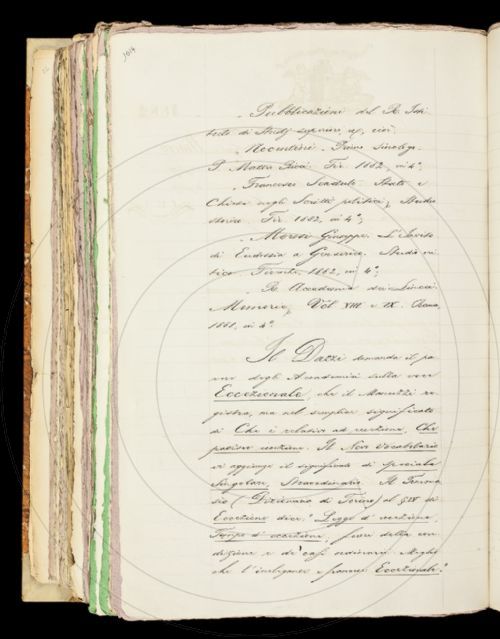 1014
„ Pubblicazioni del R. Isti
tuto di Studj superiori, ec, cioè:
„ Nocentini. Primo Sinologo.
P. Matteo Ricci. Fir. 1882, in 4°;
„ Francesco Scaduto. Stato e
Chiesa negli Scritti politici, Studio
storico. Fir. 1882, in 4°;
„ Morosi Giuseppe. L'Invito
di Eudossia a Genserico. Studio cri
tico. Firenze, 1882, in 4°;
„ R. Accademia dei Lincei.
Memorie, Vol. VIII e IX. Roma,
1881, in 4°.
Il Dazzi domanda il pa
rere degli Accademici sulla voce
Eccezionale, che il Manuzzi re
gistra, ma nel semplice significato
di Che è relativo ad eccezione, Che
patisce eccezione. Il Novo Vocabolario
vi aggiunge il significato di Speciale
Singolare, Straordinario. Il Tomma
seo (Dizionario di Torino) al § IX di
Eccezione dice: "Legge d'eccezione,
Tempo d'eccezione, fuori della con
dizione e de' casi ordinarii. Meglio
che l'inelegante e francese Eccezionale".